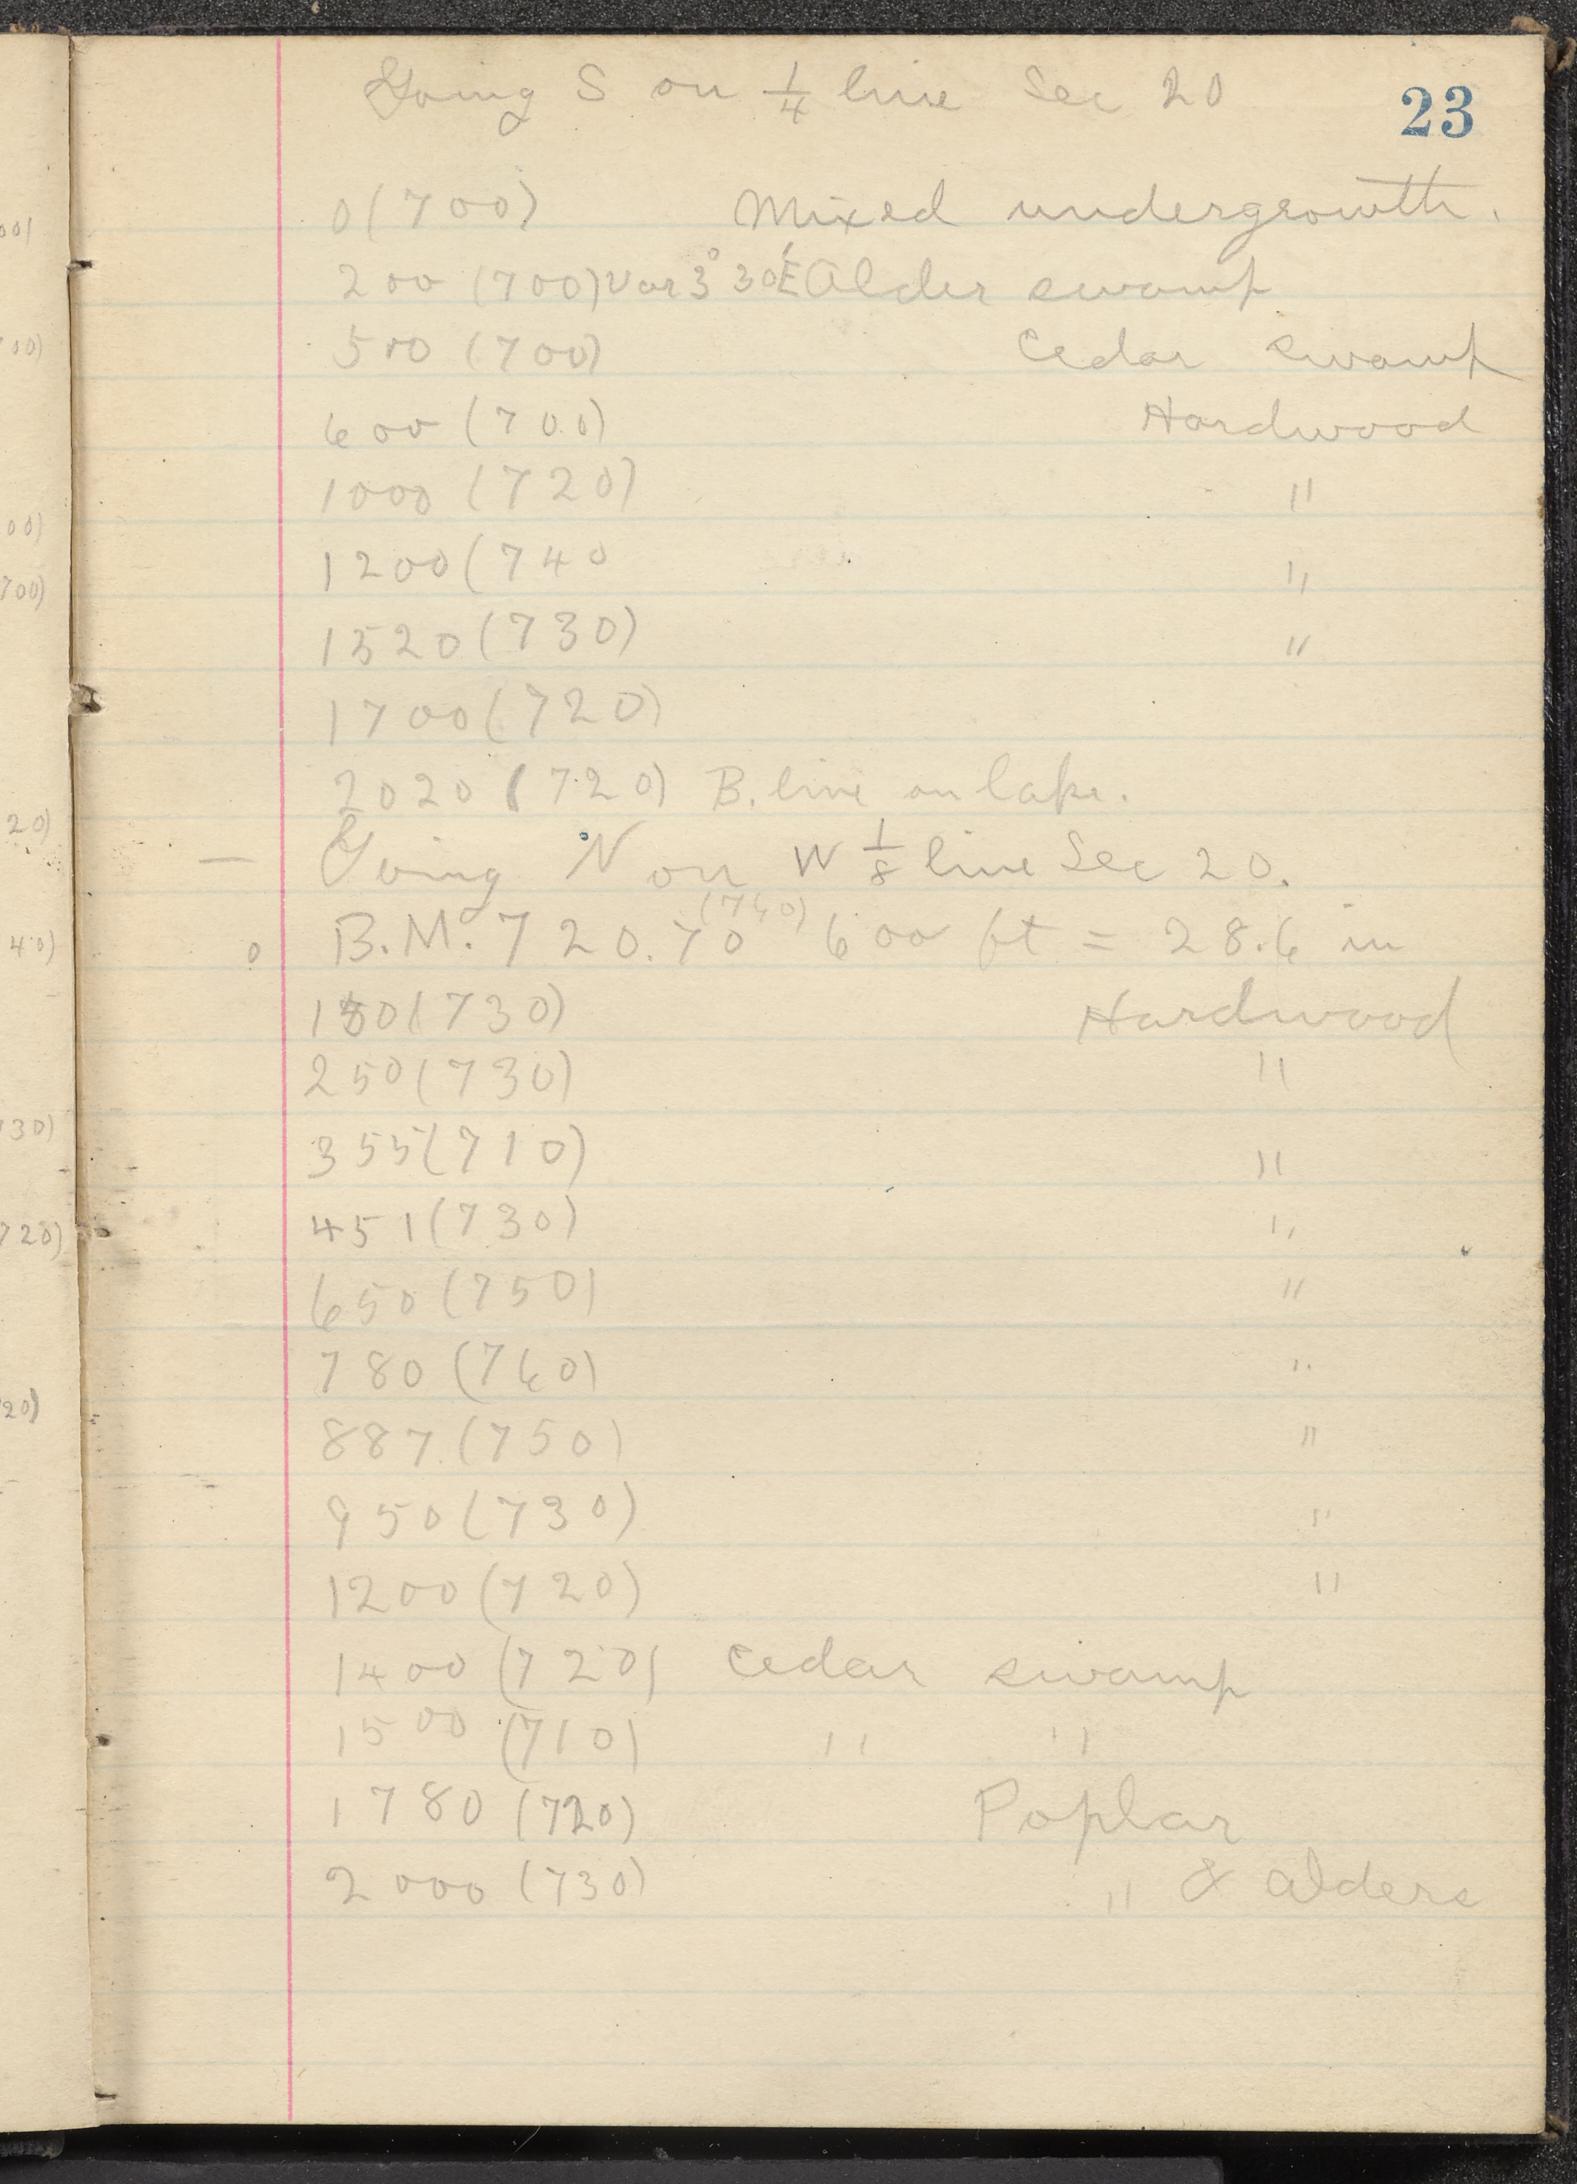 Going S on 1/4 line Sec 20
23
0 (700) Mixed undergrowth.
200 (700) Var 3° 30' E Alder swamp
500 (700) Cedar swamp
600 (700) Hardwood
1000 (720) "
1200 (740 "
1520 (730) "
1700 (720)
2020 (720) B. line on lake.
— Going N on W 1/8 line Sec 20.
(740)
0 B.M. 720.70 600 ft = 28.6 in
150 (730) Hardwood
250 (730) "
355 (710) "
451 (730) "
650 (750) "
780 (760) "
887 (750) "
950 (730) "
1200 (720) "
1400 (720) Cedar swamp
1500 (710) " "
1780 (720) Poplar
2000 (730) " & alders
00)
00)
00)
700)
20)
40)
30)
720)
20)